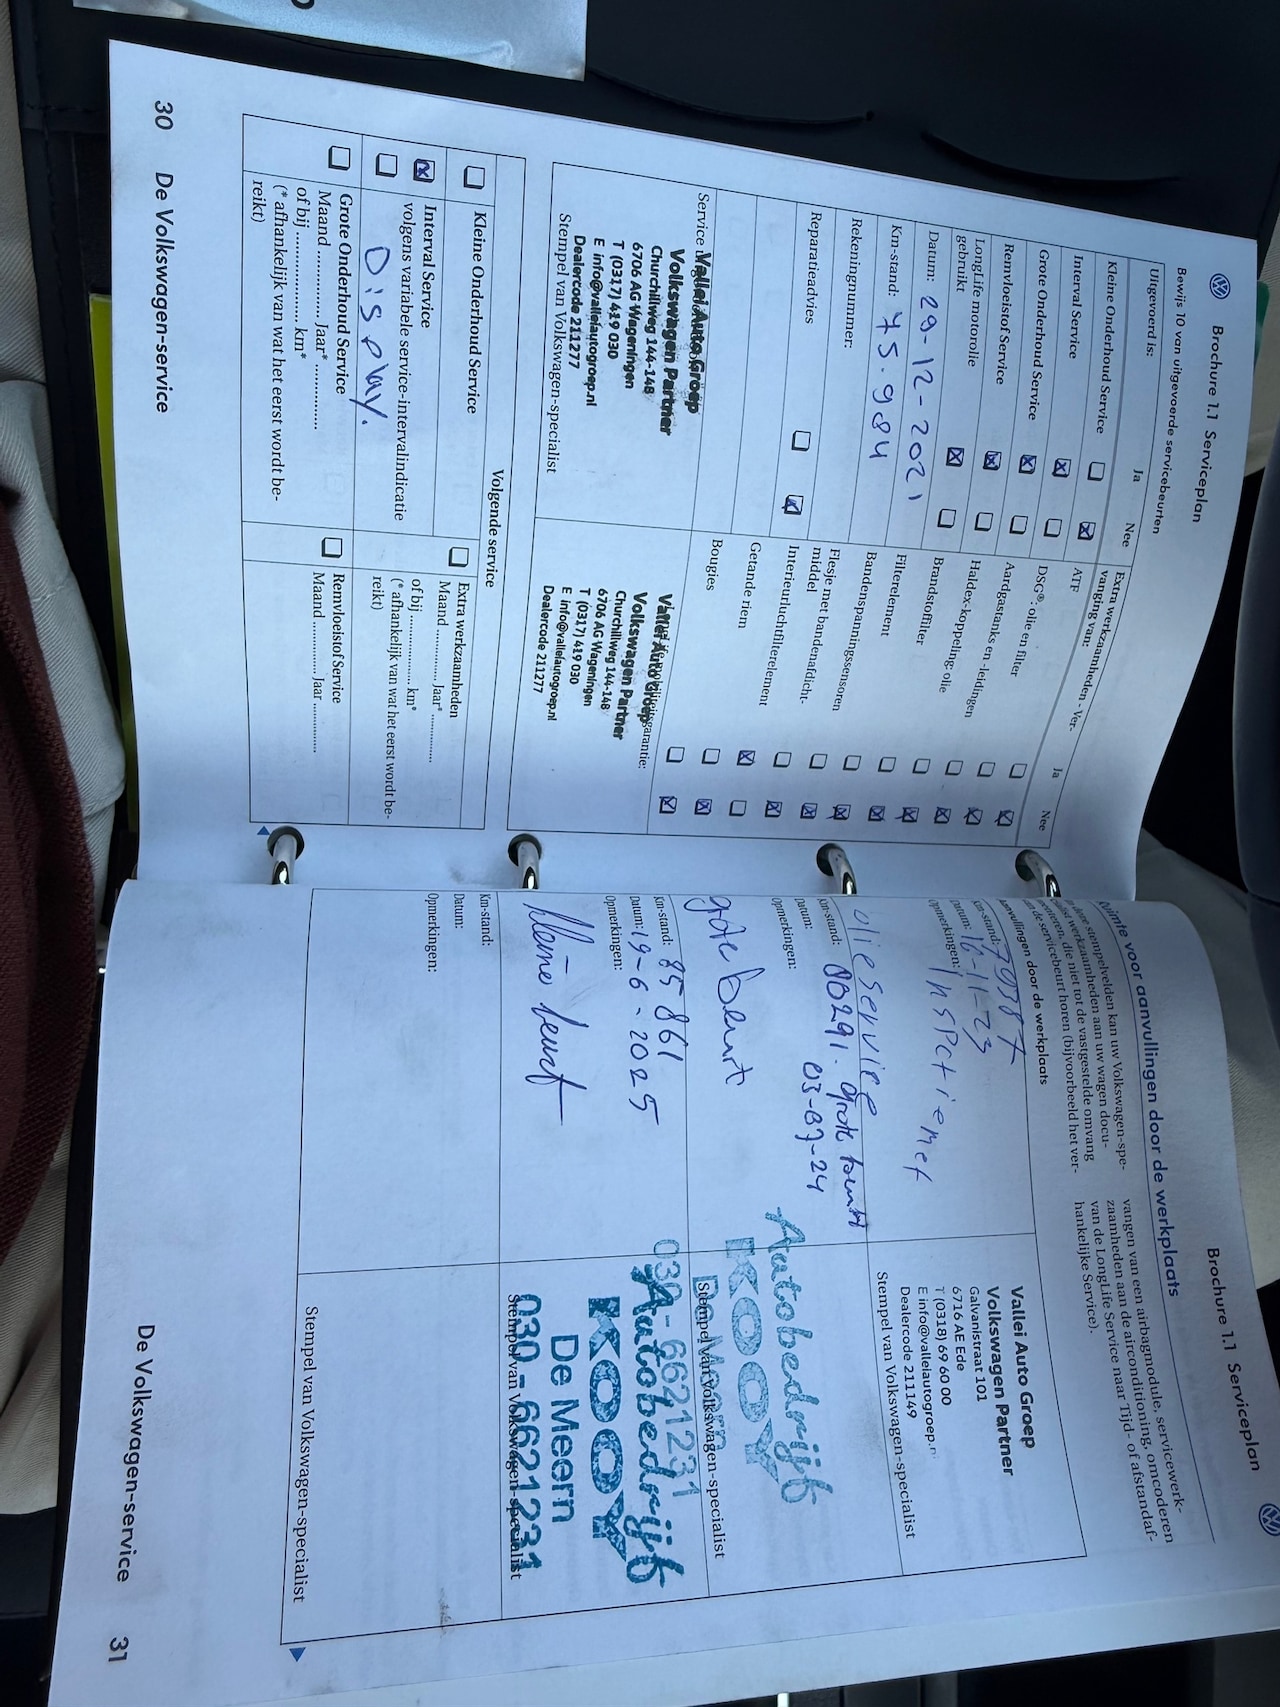 Brochure 1.1 Serviceplan
Bewijs 10 van uitgevoerde servicebeurten
Uitgevoerd is: Ja Nee
Kleine Onderhoud Service
Interval Service
Grote Onderhoud Service
Remvloeistof Service
LongLife motorolie
gebruikt
Datum: 29-12-2021
Km-stand: 45.984
Rekeningnummer:
Reparatieadvies
Service
Vallei Auto Groep
Volkswagen Partner
Churchillweg 144-148
6706 AG Wageningen
T (0317) 419 030
E info@valleiautogroep.nl
Dealercode 211277
Stempel van Volkswagen-specialist
Extra werkzaamheden - Ver-
vanging van: Ja Nee
ATF
DSG®: olie en filter
Aardgastanks en -leidingen
Haldex-koppeling: olie
Brandstoffilter
Filterelement
Bandenspanningssensoren
Flesje met bandenafdicht-
middel
Interieurluchtfilterelement
Getande riem
Bougies
mobiliteitsgarantie:
Vallei Auto Groep
Volkswagen Partner
Churchillweg 144-148
6706 AG Wageningen
T (0317) 419 030
E info@valleiautogroep.nl
Dealercode 211277
Volgende service
Kleine Onderhoud Service
Interval Service
volgens variabele service-intervalindicatie
Display.
Grote Onderhoud Service
Maand ............ Jaar* ................
of bij .................... km*
(* afhankelijk van wat het eerst wordt be-
reikt)
Extra werkzaamheden
Maand ............ Jaar* ................
of bij ................ km*
(* afhankelijk van wat het eerst wordt be-
reikt)
Remvloeistof Service
Maand ............ Jaar ............
30 De Volkswagen-service
Brochure 1.1 Serviceplan
Ruimte voor aanvullingen door de werkplaats
stempelvelden kan uw Volkswagen-spe-
werkzaamheden aan uw wagen docu-
menteren, die niet tot de vastgestelde omvang
van de servicebeurt horen (bijvoorbeeld het ver-
vangen van een airbagmodule, servicewerk-
zaamheden aan de airconditioning, omcoderen
van de LongLife Service naar Tijd- of afstandaf-
hankelijke Service).
Aanvullingen door de werkplaats
Km-stand: 79387
Datum: 16-11-23
Opmerkingen: Inspectie met
olieservice
Vallei Auto Groep
Volkswagen Partner
Galvanistraat 101
6716 AE Ede
T (0318) 69 60 00
E info@valleiautogroep.nl
Dealercode 211149
Stempel van Volkswagen-specialist
Km-stand: 80291. grote beurt
Datum: 03-07-24
Opmerkingen:
grote beurt
Autobedrijf
KOOY
De Meern
030-6621231
Stempel van Volkswagen-specialist
Km-stand: 85861
Datum: 19-6-2025
Opmerkingen:
Kleine beurt
Autobedrijf
KOOY
De Meern
030-6621231
Stempel van Volkswagen-specialist
Km-stand:
Datum:
Opmerkingen:
Stempel van Volkswagen-specialist
De Volkswagen-service 31